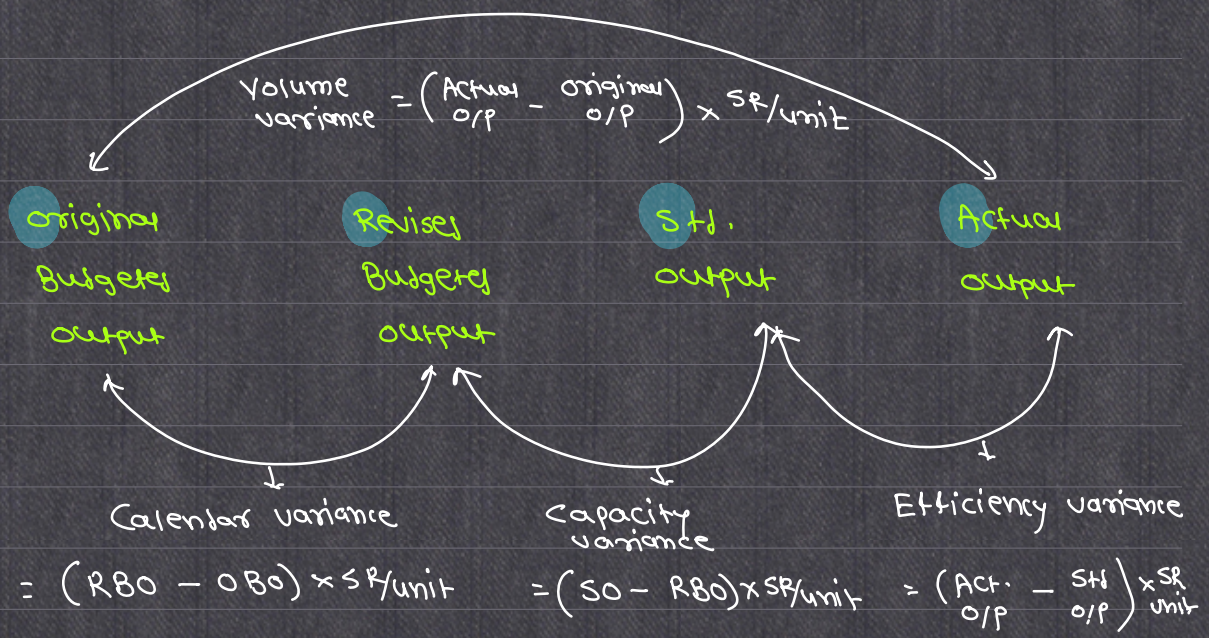 Volume variance = (Actual O/P - original O/P) × SR/unit
Original Budgeted output
Revised Budgeted output
Std. output
Actual output
Calendar variance
= (RBO - OBO) × SR/unit
Capacity variance
= (SO - RBO) × SR/unit
Efficiency variance
= (Act. O/P - Std O/P) × SR unit